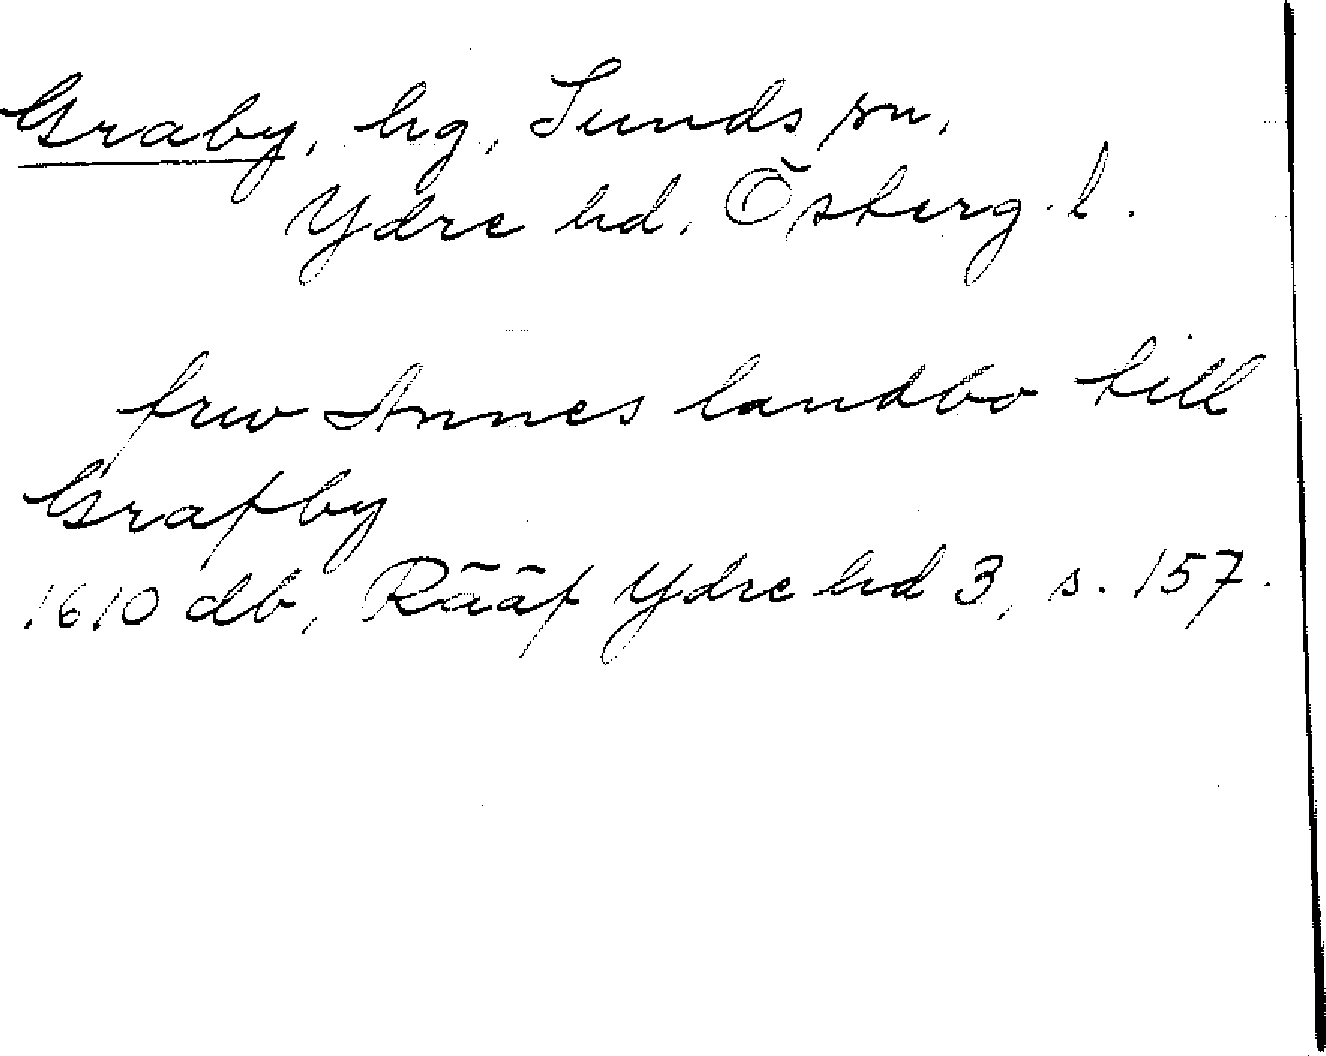 Graby, hg, Sunds sn,
Ydre hd, Österg. l.
frw Annes landbo till
Grafby
1610 db, Rääf Ydre hd 3, s. 157.